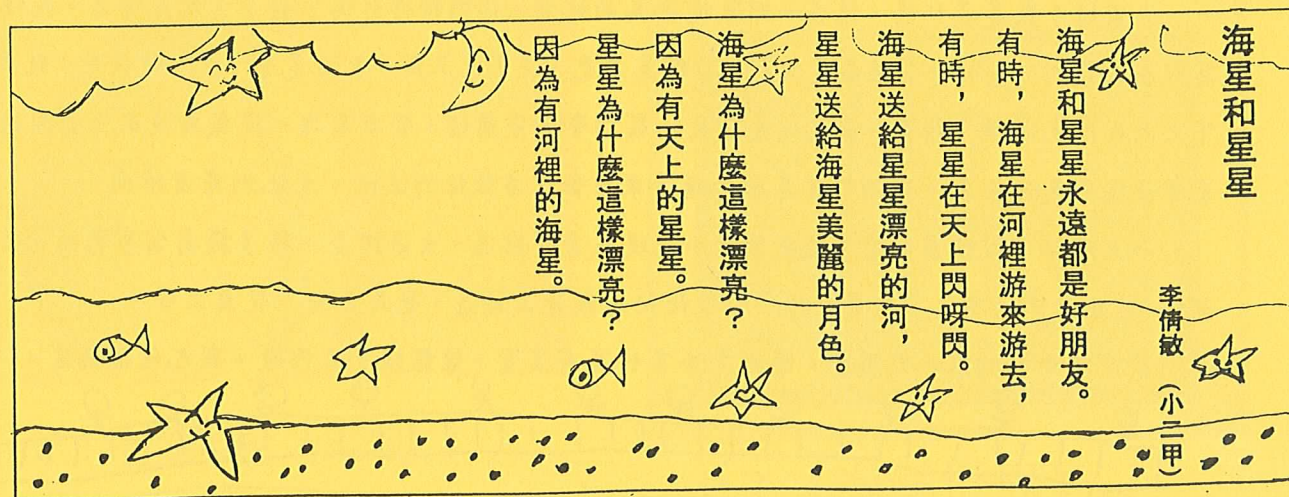 海星和星星
李倩敏 (小二甲)
海星和星星永遠都是好朋友。
有時，海星在河裡游來游去，
有時，星星在天上閃呀閃。
海星送給星星漂亮的河，
星星送給海星美麗的月色。
海星為什麼這樣漂亮？
因為有天上的星星。
星星為什麼這樣漂亮？
因為有河裡的海星。